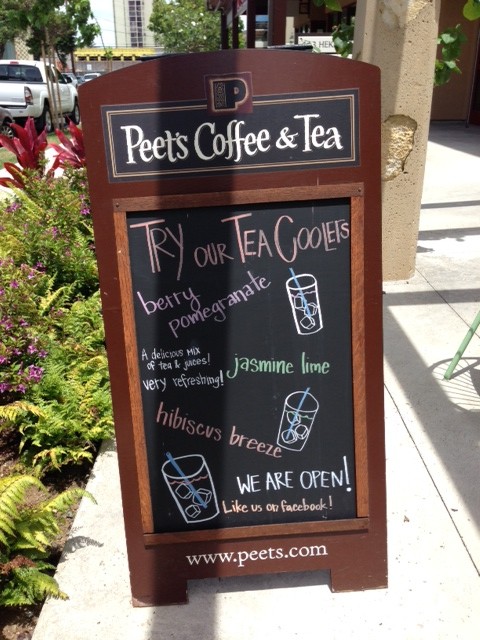 P
Peet's Coffee & Tea
TRY OUR TEA COOLERS
berry
pomegranate
A delicious mix
of tea & juices!
very refreshing!
jasmine lime
hibiscus breeze
WE ARE OPEN!
Like us on facebook!
www.peets.com